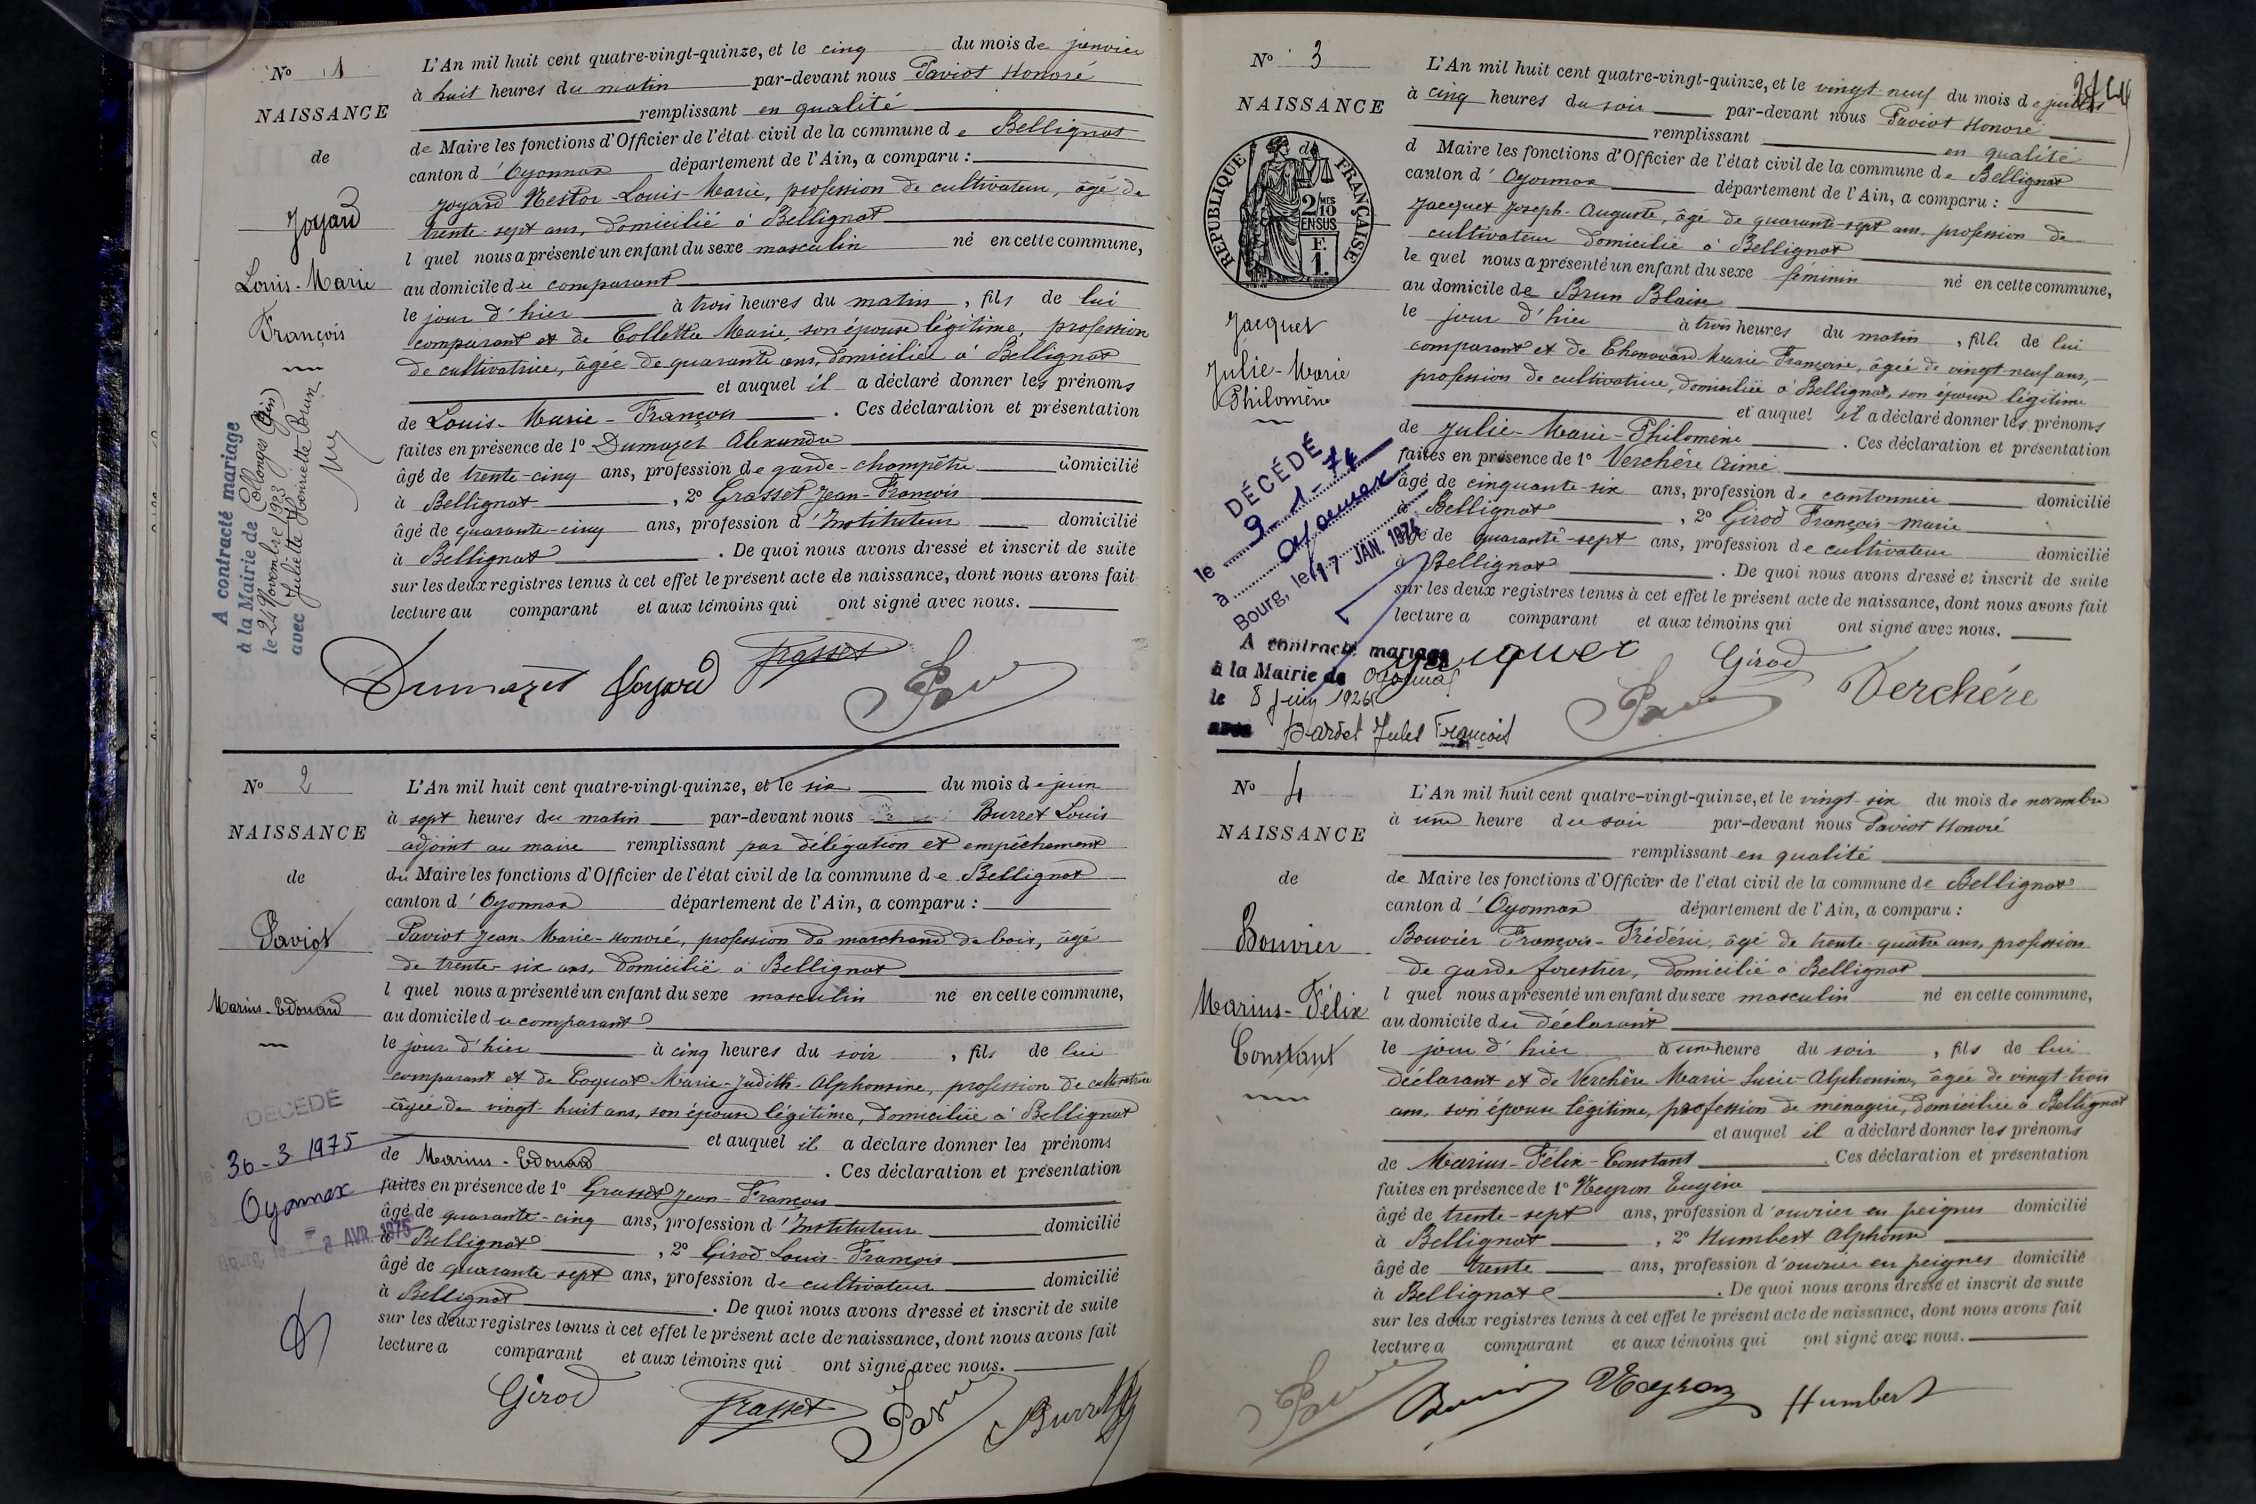 No 1
NAISSANCE
de
Joyard
Louis-Marie
François
A contracté mariage
à la Mairie de Collonges (Ain)
le 24 Novembre 1923
avec Juliette Henriette Brun
L'An mil huit cent quatre-vingt-quinze, et le cinq du mois de janvier
à huit heures du matin par-devant nous Paviot Honoré
remplissant en qualité
de Maire les fonctions d'Officier de l'état civil de la commune de Bellignat
canton d'Oyonnax département de l'Ain, a comparu :
Joyard Nestor-Louis-Marie, profession de cultivateur, âgé de
trente-sept ans, domicilié à Bellignat
lequel nous a présenté un enfant du sexe masculin né en cette commune,
au domicile du comparant
le jour d'hier à trois heures du matin, fils de lui
comparant et de Collettaz Marie, son épouse légitime, profession
de cultivatrice, âgée de quarante ans, domiciliée à Bellignat
et auquel il a déclaré donner les prénoms
de Louis-Marie-François. Ces déclaration et présentation
faites en présence de 1º Dumazet Alexandre
âgé de trente-cinq ans, profession de garde-champêtre domicilié
à Bellignat, 2º Grasset Jean-François
âgé de quarante-cinq ans, profession d'Instituteur domicilié
à Bellignat. De quoi nous avons dressé et inscrit de suite
sur les deux registres tenus à cet effet le présent acte de naissance, dont nous avons fait
lecture au comparant et aux témoins qui ont signé avec nous.
Dumazet Joyard Grasset
No 2
NAISSANCE
de
Paviot
Marius-Edouard
DÉCÉDÉ
30-3 1975
Oyonnax
Bourg, le 8 AVR. 1975
L'An mil huit cent quatre-vingt-quinze, et le six du mois de juin
à sept heures du matin par-devant nous Burret Louis
adjoint au maire remplissant par délégation et empêchement
du Maire les fonctions d'Officier de l'état civil de la commune de Bellignat
canton d'Oyonnax département de l'Ain, a comparu :
Paviot Jean-Marie-Honoré, profession de marchand de bois, âgé
de trente-six ans, domicilié à Bellignat
lequel nous a présenté un enfant du sexe masculin né en cette commune,
au domicile du comparant
le jour d'hier à cinq heures du soir, fils de lui
comparant et de Coquat Marie-Judith-Alphonsine, profession de cultivatrice
âgée de vingt-huit ans, son épouse légitime, domiciliée à Bellignat
et auquel il a déclaré donner les prénoms
de Marius-Edouard. Ces déclaration et présentation
faites en présence de 1º Grasset Jean-François
âgé de quarante-cinq ans, profession d'Instituteur domicilié
à Bellignat, 2º Girod Louis-François
âgé de quarante-sept ans, profession de cultivateur domicilié
à Bellignat. De quoi nous avons dressé et inscrit de suite
sur les deux registres tenus à cet effet le présent acte de naissance, dont nous avons fait
lecture a comparant et aux témoins qui ont signé avec nous.
Girod Grasset Burret
No 3
NAISSANCE
RÉPUBLIQUE FRANÇAISE
2/10 MES
EN SUS
F.
1.
Jacquet
Julie-Marie
Philomène
DÉCÉDÉ
le 9-1-74
à Oyonnax
Bourg, le 17 JAN. 1974
A contracté mariage
à la Mairie de Oyonnax
le 8 Juin 1926
avec Bardet Jules François
L'An mil huit cent quatre-vingt-quinze, et le vingt-neuf du mois de juillet
à cinq heures du soir par-devant nous Paviot Honoré
remplissant en qualité
d Maire les fonctions d'Officier de l'état civil de la commune de Bellignat
canton d'Oyonnax département de l'Ain, a comparu :
Jacquet Joseph-Auguste, âgé de quarante-sept ans, profession de
cultivateur domicilié à Bellignat
lequel nous a présenté un enfant du sexe féminin né en cette commune,
au domicile de Brun Blaise
le jour d'hier à trois heures du matin, fille de lui
comparant et de Chenavard Marie-Françoise, âgée de vingt-neuf ans,
profession de cultivatrice, domiciliée à Bellignat, son épouse légitime
et auquel il a déclaré donner les prénoms
de Julie-Marie-Philomène. Ces déclaration et présentation
faites en présence de 1º Verchère Aimé
âgé de cinquante-six ans, profession de cantonnier domicilié
à Bellignat, 2º Girod François-Marie
âgé de quarante-sept ans, profession de cultivateur domicilié
à Bellignat. De quoi nous avons dressé et inscrit de suite
sur les deux registres tenus à cet effet le présent acte de naissance, dont nous avons fait
lecture a comparant et aux témoins qui ont signé avec nous.
Jacquet Girod Verchère
No 4
NAISSANCE
de
Bouvier
Marius-Félix
Constant
L'An mil huit cent quatre-vingt-quinze, et le vingt-six du mois de novembre
à une heure du soir par-devant nous Paviot Honoré
remplissant en qualité
de Maire les fonctions d'Officier de l'état civil de la commune de Bellignat
canton d'Oyonnax département de l'Ain, a comparu :
Bouvier François-Frédéric, âgé de trente-quatre ans, profession
de garde forestier, domicilié à Bellignat
lequel nous a présenté un enfant du sexe masculin né en cette commune,
au domicile du déclarant
le jour d'hier à une heure du soir, fils de lui
déclarant et de Verchère Marie-Lucie-Alphonsine, âgée de vingt-trois
ans, son épouse légitime, profession de ménagère, domiciliée à Bellignat
et auquel il a déclaré donner les prénoms
de Marius-Félix-Constant. Ces déclaration et présentation
faites en présence de 1º Neyron Eugène
âgé de trente-sept ans, profession d'ouvrier en peignes domicilié
à Bellignat, 2º Humbert Alphonse
âgé de trente ans, profession d'ouvrier en peignes domicilié
à Bellignat. De quoi nous avons dressé et inscrit de suite
sur les deux registres tenus à cet effet le présent acte de naissance, dont nous avons fait
lecture a comparant et aux témoins qui ont signé avec nous.
Neyron Humbert